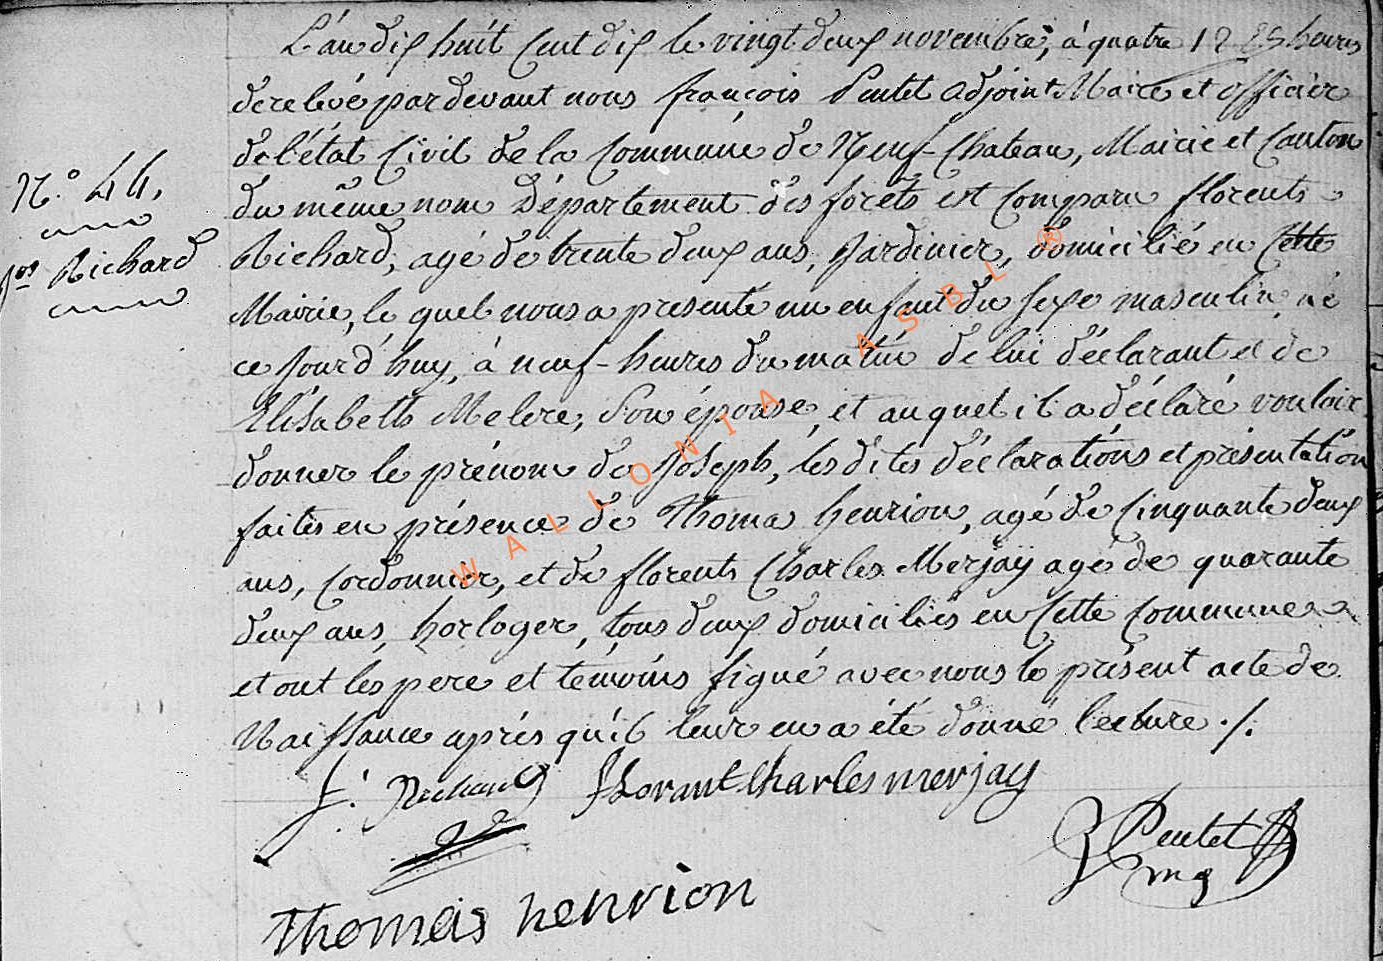 L'an dix huit cent dix le vingt deux novembre, à quatre heures
de relevé pardevant nous françois Pentet adjoint Maire et officier
de l'état Civil de la Commune de Neuf-Chateau, Mairie et Canton
N.° 44.
du même nom Département des forêts est Comparu florents
Jos Richard
Richard, agé de trente deux ans, Jardinier, domicilié en Cette
Mairie, le quel nous a presenté un enfant du sexe masculin né
ce Jourd'huy, à neuf-heures du matin de lui déclarant et de
Elisabeth Melere, Son épouse, et auquel il a déclaré vouloir
donner le prénom de Joseph, les dites déclarations et présentation
faites en présence de Thoma henrion, agé de Cinquante deux
ans, Cordonnier, et de florents Charles Merjay agé de quarante
deux ans, horloger, tous deux domiciliés en Cette Commune
et ont les pere et témoins signé avec nous le présent acte de
Naissance après qu'il leur en a été donné lecture ./.
f. Richard florant Charles merjay
Pentet
Thomas henrion
WALLONIA ASBL ®